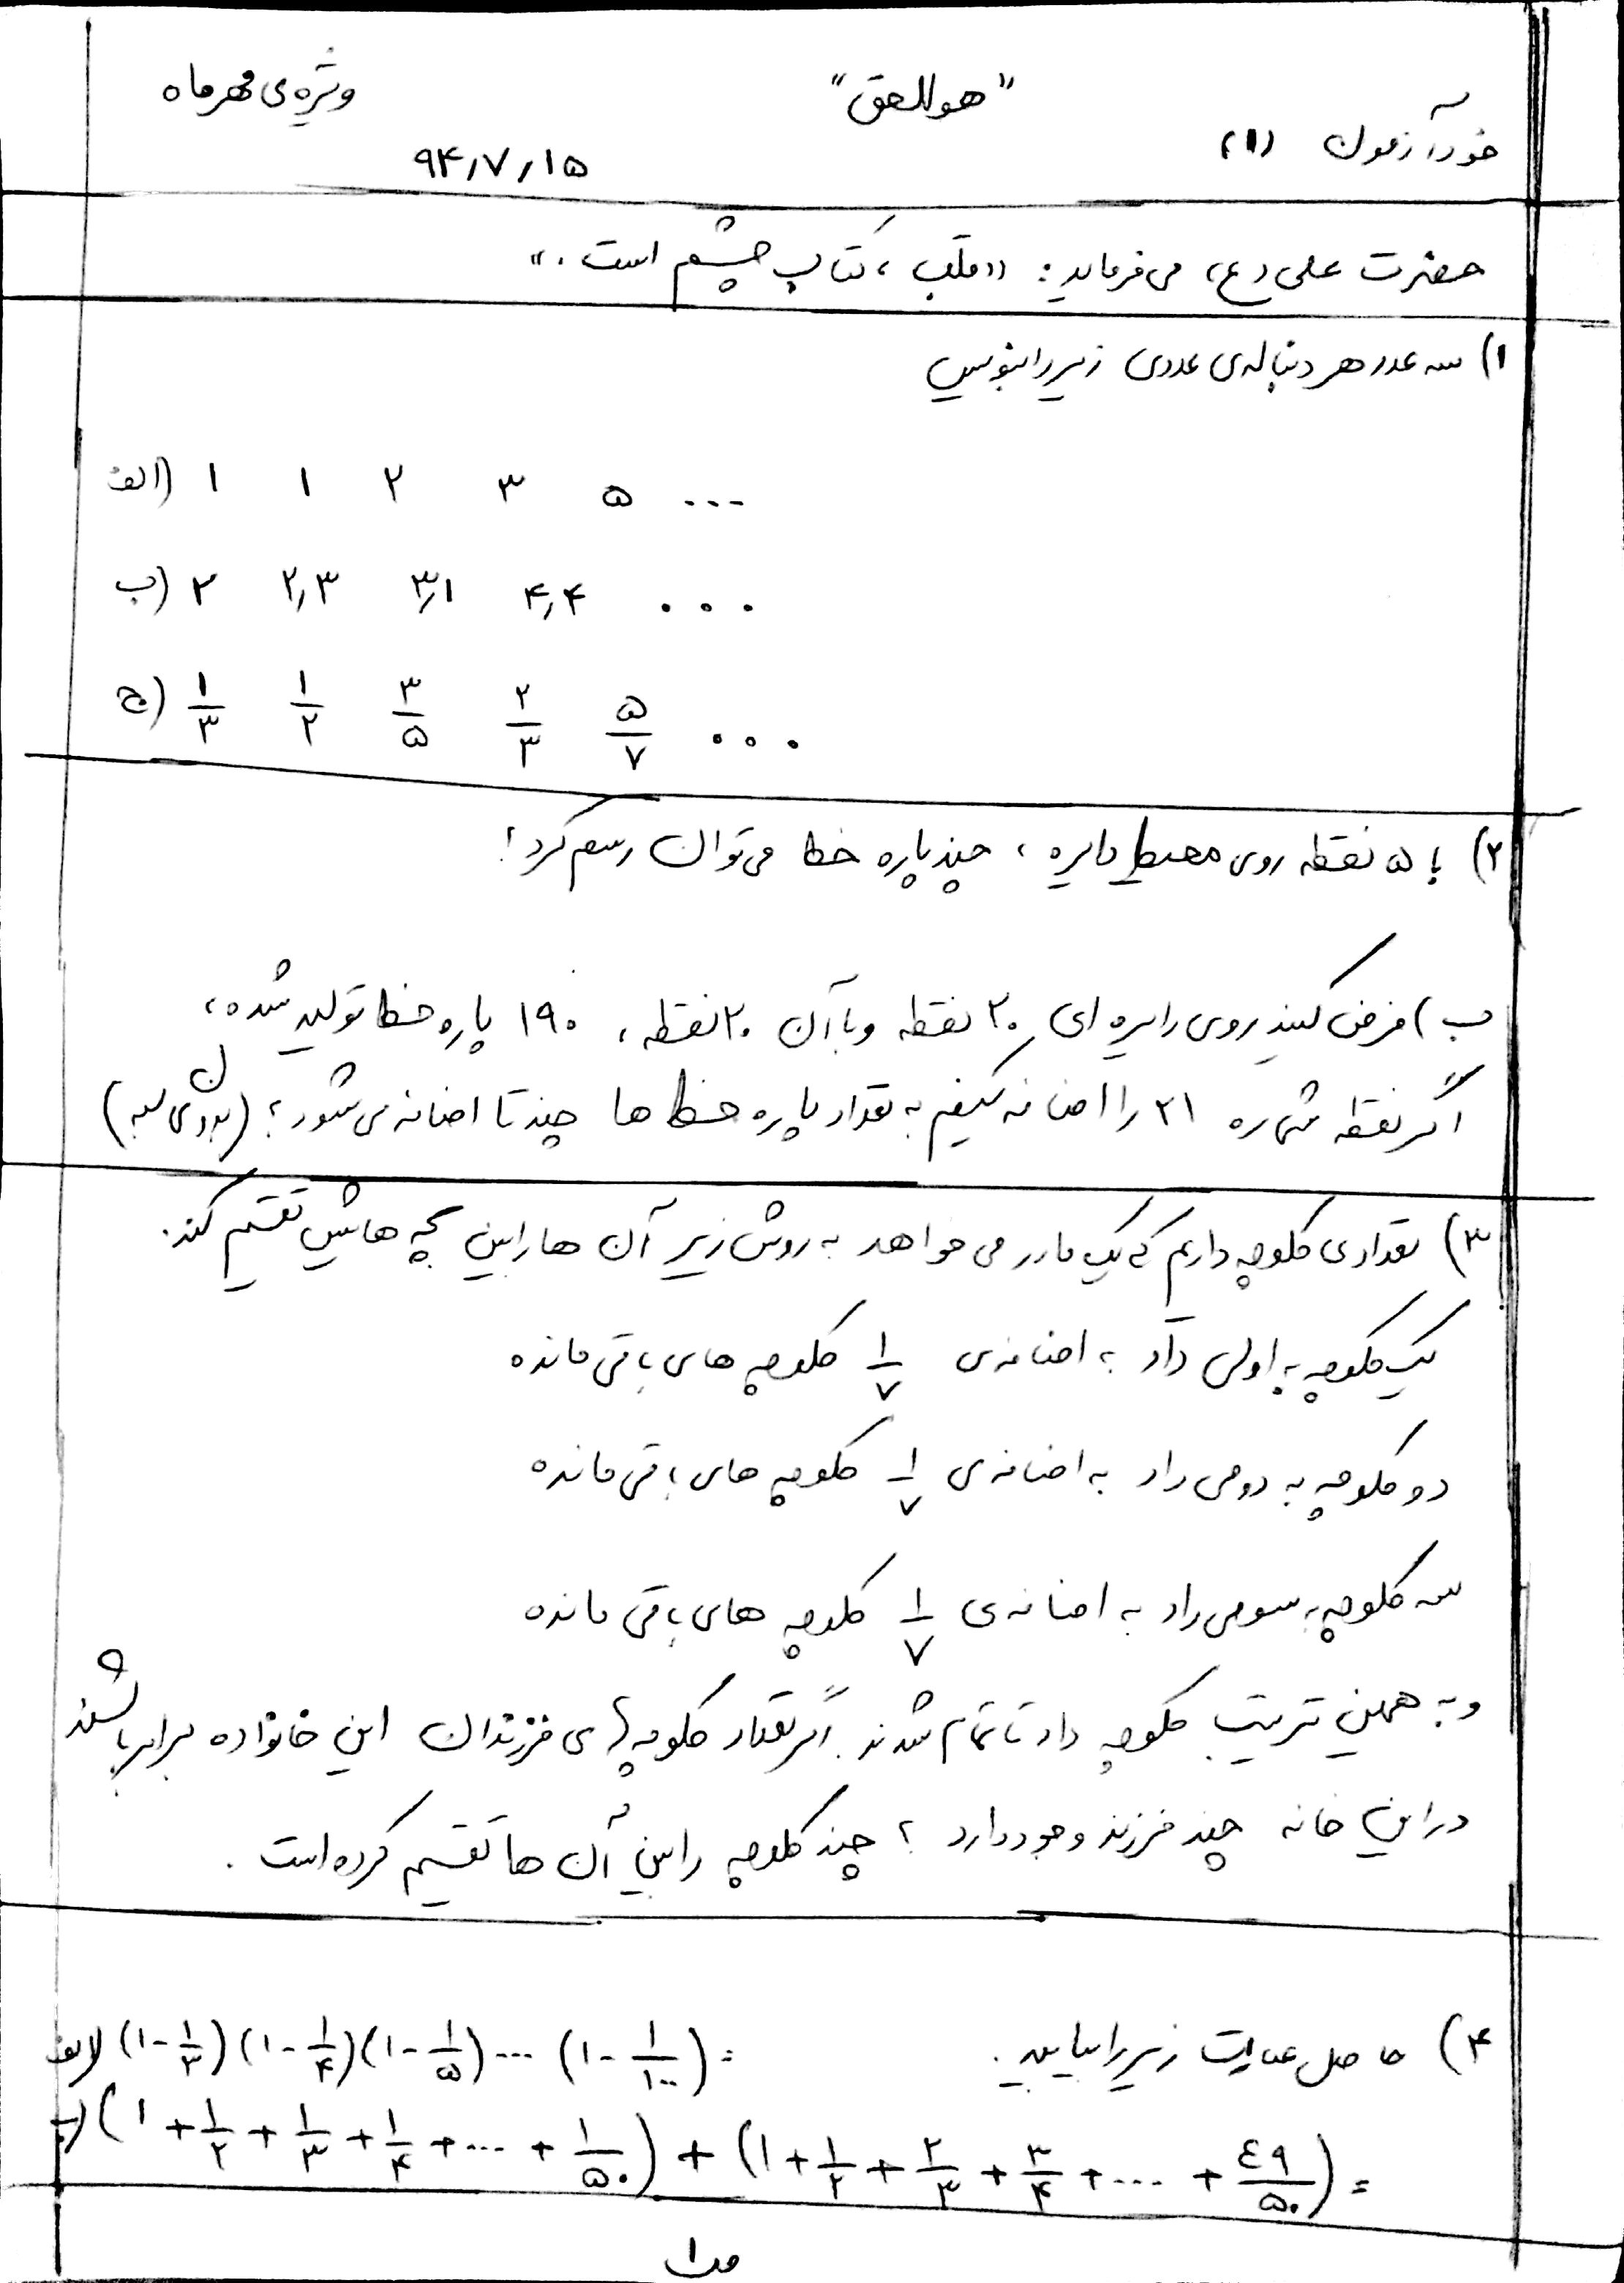 "هوالحق"
ویژه‌ی مهرماه
خودآزمون (۱)
۹۴/۷/۱۵
حضرت علی (ع) می‌فرماید: «قلب، کتاب چشم است.»
۱) سه عدد هر دنباله‌ی عددی زیر را بنویس
الف) ۱ ۱ ۲ ۳ ۵ ...
ب) ۲ ۲٫۳ ۳٫۱ ۴٫۴ ...
ج) ۱/۳ ۱/۲ ۳/۵ ۲/۳ ۵/۷ ...
۲) با ۵ نقطه روی محیط دایره، چند پاره خط می‌توان رسم کرد؟
ب) فرض کنید روی دایره‌ای ۲۰ نقطه و با آن ۲۰ نقطه، ۱۹۰ پاره خط تولید شده،
اگر نقطه شماره ۲۱ را اضافه کنیم به تعداد پاره خط ها چند تا اضافه می‌شود؟
۳) تعدادی کلوچه داریم که یک مادر می‌خواهد به روش زیر آن ها را بین بچه هایش تقسیم کند.
یک کلوچه به اولی داد به اضافه‌ی ۱/۷ کلوچه های باقی مانده
دو کلوچه به دومی داد به اضافه‌ی ۱/۷ کلوچه های باقی مانده
سه کلوچه به سومی داد به اضافه‌ی ۱/۷ کلوچه های باقی مانده
و به همین ترتیب کلوچه داد تا تمام شدند. اگر تعداد کلوچه‌های فرزندان این خانواده برابر باشند
در این خانه چند فرزند وجود دارد؟ چند کلوچه را بین آن ها تقسیم کرده است.
۴) حاصل عبارت زیر را بیابید.
الف) (۱-۱/۳)(۱-۱/۴)(۱-۱/۵)...(۱-۱/۱۰۰) =
ب) (۱+۱/۲+۱/۳+۱/۴+...+۱/۵۰) + (۱+۱/۲+۲/۳+۳/۴+...+۴۹/۵۰) =
ص۱